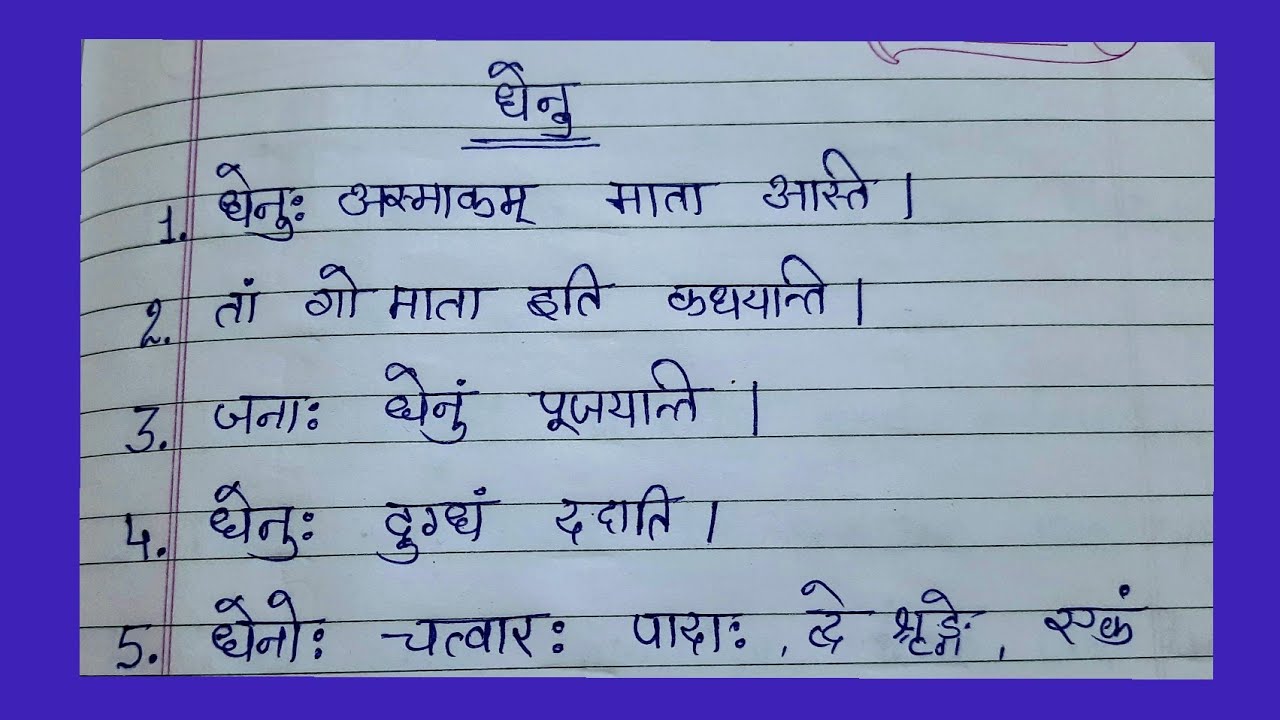 धेनु
1. धेनुः अस्माकम् माता अस्ति ।
2. तां गो माता इति कथयन्ति ।
3. जनाः धेनुं पूजयन्ति ।
4. धेनुः दुग्धं ददाति ।
5. धेनोः चत्वारः पादाः, द्वे श्रृङ्गे, एकं